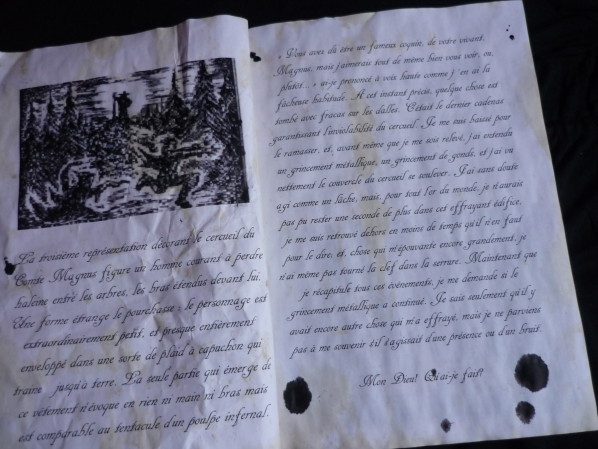 La troisième représentation décorant le cercueil du
Comte Magnus figure un homme courant à perdre
haleine entre les arbres, les bras étendus devant lui.
Une forme étrange le pourchasse : le personnage est
extraordinairement petit, et presque entièrement
enveloppé dans une sorte de plaid à capuchon qui
traîne jusqu'à terre. La seule partie qui émerge de
ce vêtement n'évoque en rien ni main ni bras mais
est comparable au tentacule d'un poulpe infernal.
« Vous avez dû être un fameux coquin, de votre vivant,
Magnus, mais j'aimerais tout de même bien vous voir, ou,
plutôt... » ai-je prononcé à voix haute comme j'en ai la
fâcheuse habitude. A cet instant précis, quelque chose est
tombé avec fracas sur les dalles. C'était le dernier cadenas
garantissant l'inviolabilité du cercueil. Je me suis baissé pour
le ramasser, et, avant même que je me sois relevé, j'ai entendu
un grincement métallique, un grincement de gonds, et j'ai vu
nettement le couvercle du cercueil se soulever. J'ai sans doute
agi comme un lâche, mais, pour tout l'or du monde, je n'aurais
pas pu rester une seconde de plus dans cet effrayant édifice,
je me suis retrouvé dehors en moins de temps qu'il n'en faut
pour le dire, et, chose qui m'épouvante encore grandement, je
n'ai même pas tourné la clef dans la serrure. Maintenant que
je récapitule tous ces événements, je me demande si le
grincement métallique a continué. Je sais seulement qu'il y
avait encore autre chose qui m'a effrayé, mais je ne parviens
pas à me souvenir s'il s'agissait d'une présence ou d'un bruit.
Mon Dieu! Qu'ai-je fait?